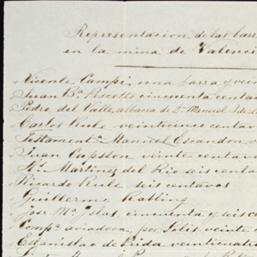 Representacion de las barr
en la mina de Valenci
Vicente Campi, una barra y vein
Juan Bª. cincuenta centa
Pedro del Valle, albacea de Dⁿ. Manuel
Carlos Rule veinticinco centav
Testamentª. Manuel Escandon
Juan Capslon veinte centav
Martinez del Rio seis centav
Ricardo Rule seis centavos
Guillermo Rabling
José Mª. Islas, cincuenta y seis c
Compª. aviadora, por Solis veinte
Estanislao de veinticuat